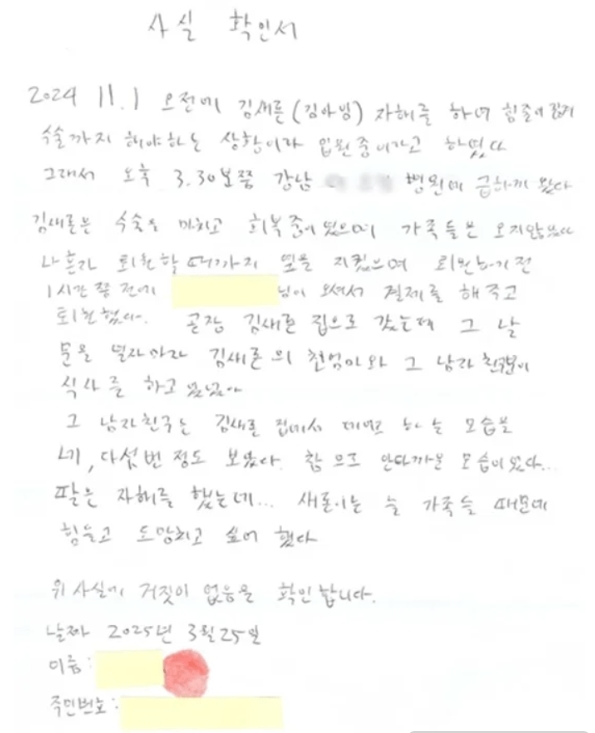 사실 확인서
2024 11.1 오전에 김새론(김아임) 자해를 하여 힘줄이 끊겨
수술까지 해야하는 상황이라 입원중이라고 하였다
그래서 오후 3.30분쯤 강남 병원에 급하게 왔다
김새론은 수술을 마치고 회복중이었으며 가족들은 오지않았다
나혼자 퇴원할때까지 옆을 지켰으며 퇴원하기전
1시간쯤 전에 님이 오셔서 결제를 해주고
퇴원했다. 곧장 김새론 집으로 갔는데 그 날
문을 열자마자 김새론의 친엄마와 그 남자친구분이
식사를 하고 있었다
그 남자친구는 김새론 집에서 데이트 하는 모습을
네, 다섯번 정도 보았다. 참으로 안타까운 모습이었다...
딸은 자해를 했는데... 새론이는 늘 가족들 때문에
힘들고 도망치고 싶어 했다
위 사실에 거짓이 없음을 확인합니다.
날짜 2025년 3월25일
이름:
주민번호: